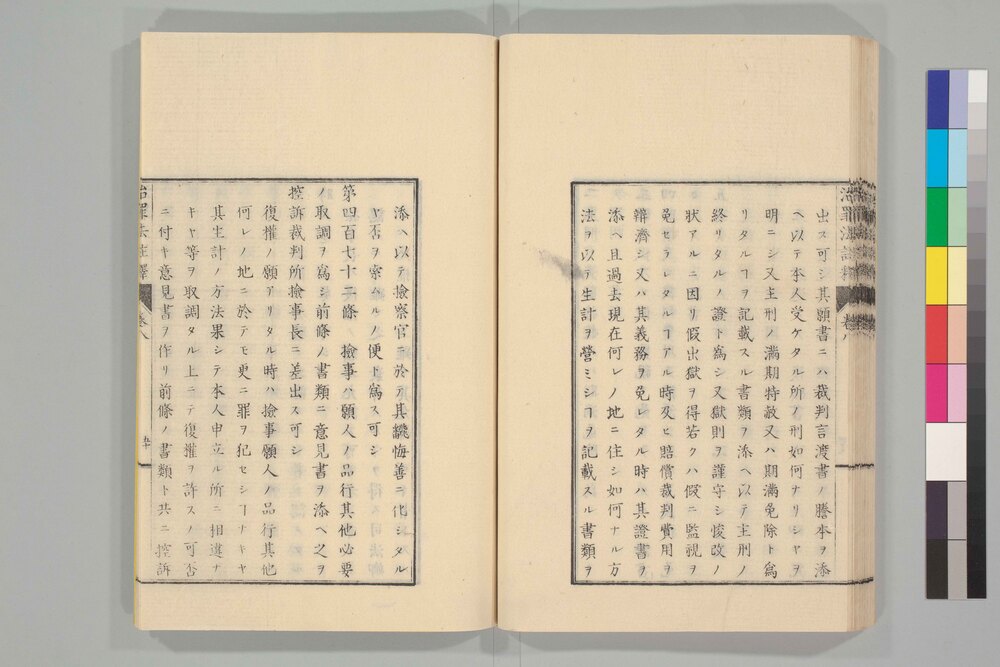 出ス可シ其願書ニハ裁判言渡書ノ謄本ヲ添
ヘ以テ本人受ケタル所ノ刑如何ナリシヤヲ
明ニシ又主刑ノ滿期特赦又ハ期滿免除ト爲
リタルヿヲ記載スル書類ヲ添ヘ以テ主刑ノ
終リタルノ證ト爲シ又獄則ヲ謹守シ悛改ノ
狀アルニ因リ假出獄ヲ得若クハ假ニ監視ヲ
免セラレタルヿアル時及ヒ賠償裁判費用ヲ
辨濟シ又ハ其義務ヲ免レタル時ハ其證書ヲ
添ヘ且過去現在何レノ地ニ住シ如何ナル方
法ヲ以テ生計ヲ營ミシヿヲ記載スル書類ヲ
添ヘ以テ撿察官ニ於テ其懺悔善ニ化シタル
ヤ否ヲ察スルノ便ト爲ス可シ
第四百七十二條 撿事ハ願人ノ品行其他必要
ノ取調ヲ爲シ前條ノ書類ニ意見書ヲ添ヘ之ヲ
控訴裁判所撿事長ニ差出ス可シ
復權ノ願アリタル時ハ撿事願人ノ品行其他
何レノ地ニ於テモ更ニ罪ヲ犯セシヿナキヤ
其生計ノ方法果シテ本人申立ル所ニ相違ナ
キヤ等ヲ取調タル上ニテ復權ヲ許スノ可否
ニ付キ意見書ヲ作リ前條ノ書類ト共ニ控訴
治罪法註釋 卷八